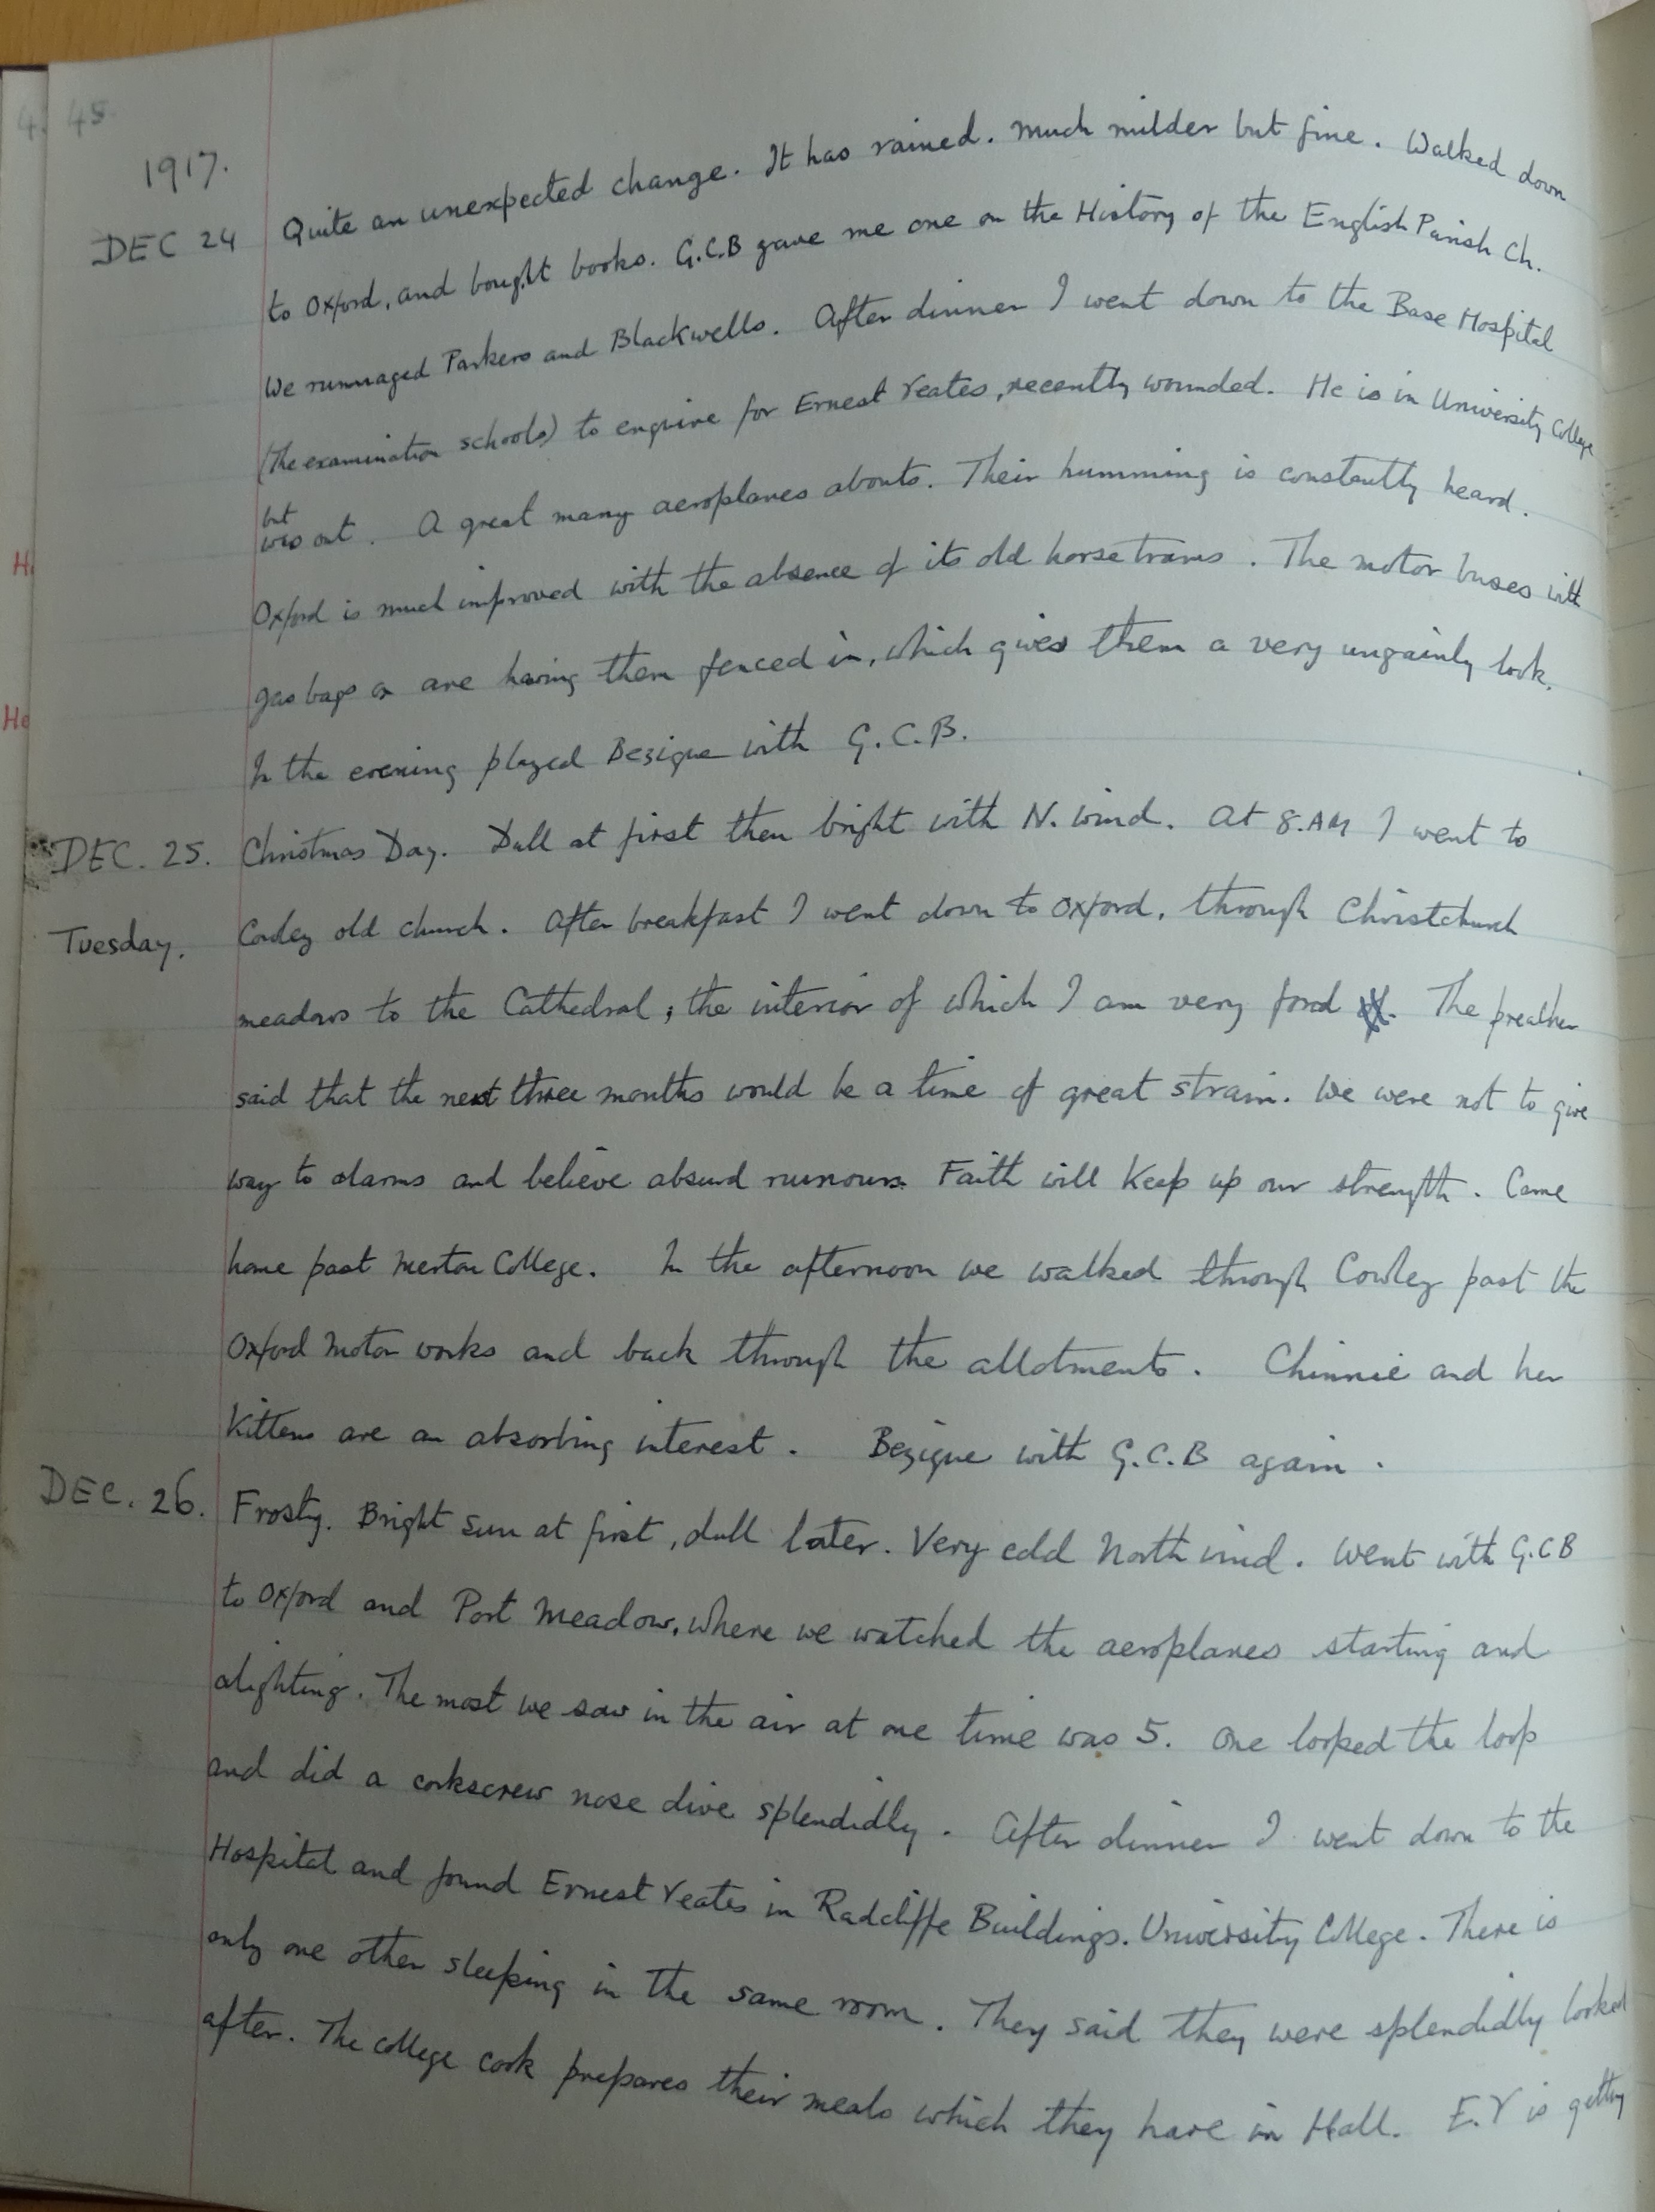 45
1917.
DEC 24 Quite an unexpected change. It has rained. Much milder but fine. Walked down
to Oxford, and bought books. G.C.B gave me one on the History of the English Parish Ch.
We rummaged Parkers and Blackwells. After dinner I went down to the Base Hospital
(The examination schools) to enquire for Ernest Yeates, recently wounded. He is in University College
but
was out. A great many aeroplanes abouts. Their humming is constantly heard.
Oxford is much improved with the absence of its old horse trams. The motor buses with
gas bags on are having them fenced in, which gives them a very ungainly look.
In the evening played Bezique with G.C.B.
DEC. 25. Christmas Day. Dull at first then bright with N. wind. At 8.AM I went to
Tuesday. Cowley old church. After breakfast I went down to Oxford, through Christchurch
meadows to the Cathedral; the interior of which I am very fond. The preacher
said that the next three months would be a time of great strain. We were not to give
way to alarms and believe absurd rumours. Faith will keep up our strength. Came
home past Merton College. In the afternoon we walked through Cowley past the
Oxford Motor works and back through the allotments. Chinnie and her
Kittens are an absorbing interest. Bezique with G.C.B again.
DEC. 26. Frosty. Bright sun at first, dull later. Very cold North wind. Went with G.C B
to Oxford and Port Meadow, where we watched the aeroplanes starting and
alighting. The most we saw in the air at one time was 5. One looped the loop
and did a corkscrew nose dive splendidly. After dinner I went down to the
Hospital and found Ernest Yeates in Radcliffe Buildings. University College. There is
only one other sleeping in the same room. They said they were splendidly looked
after. The college cook prepares their meals which they have in Hall. E.Y is getting